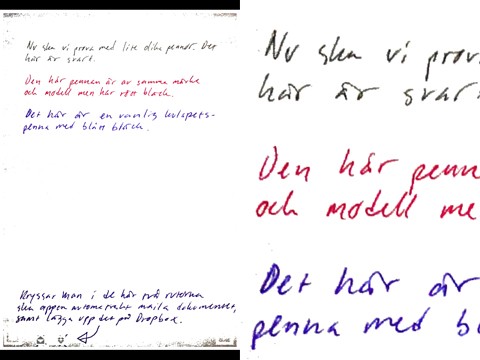 Nu ska vi prova med lite olika pennor. Det
här är svart.
Den här pennan är av samma märke
och modell men har rött bläck.
Det här är en vanlig kulspets-
penna med blått bläck.
Kryssar man i de här två rutorna
ska appen automatiskt maila dokumentet,
samt lägga upp det på Dropbox.
Nu ska vi prova
här är svart.
Den här penna
och modell me
Det här är
penna med bl